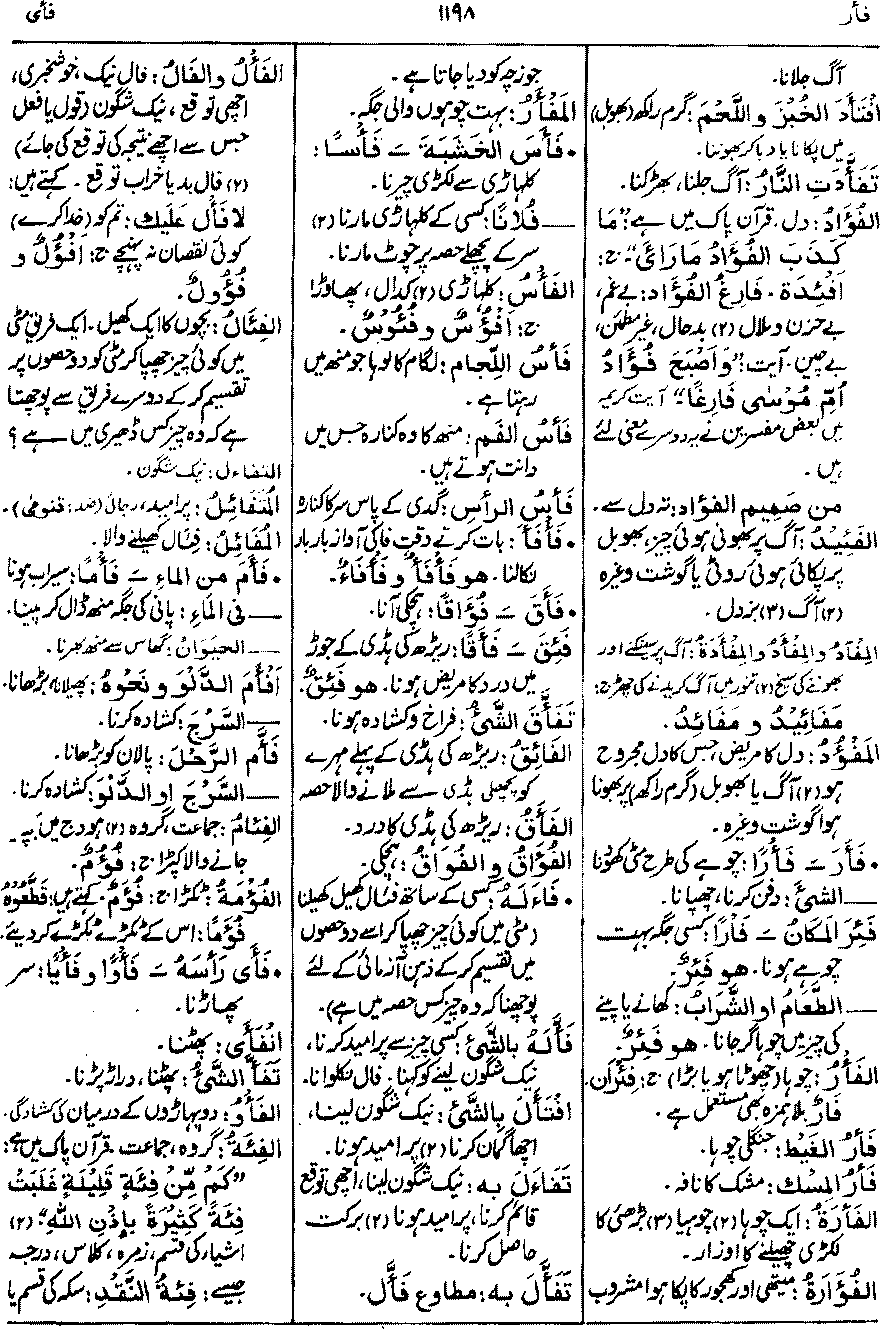 فأر ۱۱۹۸ فأی
آگ جلانا۔
افْتَأَدَ الخُبْزَ وَاللَّحْمَ: گرم راکھ (بھوبل)
میں پکانا یا دبا کر بھوننا۔
تَفَأَّدَتِ النَّارُ: آگ جلنا، بھڑکنا۔
الفُؤَادُ: دل۔ قرآن پاک میں ہے: ”مَا
كَذَبَ الفُؤَادُ مَا رَاىٰ“۔ ج:
اَفْئِدَة۔ فَارِغُ الفُؤَاد: بے غم،
بے حزن و ملال (۲) بدحال، غیر مطمئن،
بے چین۔ آیت: ”وَاَصْبَحَ فُؤَادُ
اُمِّ مُوْسٰی فَارِغًا“۔ آیت کریمہ
میں بعض مفسرین نے یہ دوسرے معنی لئے
ہیں۔
مِن صَمِيمِ الفُؤَاد: تہ دل سے۔
الفَئِيْدُ: آگ پر بھونی ہوئی چیز، بھوبل
پر پکائی ہوئی روٹی یا گوشت وغیرہ
(۲) آگ (۳) بزدل۔
المِفْآدُ والمِفْأَدُ والمِفْأَدَةُ: آگ پر سینکنے اور
بھوننے کی سیخ (۲) تنور میں آگ کریدنے کی چھڑ ج:
مَفَائِيْدُ و مَفَائِدُ۔
المَفْؤُدُ: دل کا مریض، جس کا دل مجروح
ہو (۲) آگ یا بھوبل (گرم راکھ) پر بھونا
ہوا گوشت وغیرہ۔
• فَأَرَ ــَـ فَأْرًا: چوہے کی طرح مٹی کھودنا
ـــ الشَّیْءَ: دفن کرنا، چھپانا۔
فَئِرَ المَكَانُ ــَـ فَأَرًا: کسی جگہ بہت
چوہے ہونا۔ هو فَئِرٌ۔
ـــ الطَّعَامُ اوِ الشَّرَابُ: کھانے یا پینے
کی چیز میں چوہا گر جانا۔ هو فَئِرٌ۔
الفَأْرُ: چوہا (چھوٹا ہو یا بڑا) ج: فِئْرَان۔
فَارٌ بلا ہمزہ بھی مستعمل ہے۔
فَأْرُ الغَيْط: جنگلی چوہا۔
فَأْرُ المِسْك: مشک کا نافہ۔
الفَأْرَةُ: ایک چوہا (۲) چوہیا (۳) بڑھئی کا
لکڑی چھیلنے کا اوزار۔
الفُؤَارَةُ: میتھی اور کھجور کا پکا ہوا مشروب
جو زچہ کو دیا جاتا ہے۔
المَفْأَرُ: بہت چوہوں والی جگہ۔
• فَأَسَ الخَشَبَةَ ــَـ فَأْسًا:
کلہاڑی سے لکڑی چیرنا۔
ـــ فُلَانًا: کسی کے کلہاڑی مارنا (۲)
سر کے پچھلے حصہ پر چوٹ مارنا۔
الفَأْسُ: کلہاڑی (۲) کدال، پھاوڑا
ج: اَفْؤُسٌ و فُئُوسٌ۔
فَأْسُ اللِّجَام: لگام کا لوہا جو منھ میں
رہتا ہے۔
فَأْسُ الفَمِ: منھ کا وہ کنارہ جس میں
دانت ہوتے ہیں۔
فَأْسُ الرَأْسِ: گدی کے پاس سر کا کنارہ
• فَأْفَأَ: بات کرتے وقت فا کی آواز بار بار
نکالنا۔ هو فَأْفَأٌ و فَأْفَاءٌ۔
• فَأَقَ ــَـ فُؤَاقًا: ہچکی آنا۔
فَئِقَ ــَـ فَأَقًا: ریڑھ کی ہڈی کے جوڑ
میں درد کا مریض ہونا۔ هو فَئِقٌ۔
تَفَأَّقَ الشَّیْءُ: فراخ و کشادہ ہونا۔
الفَائِقُ: ریڑھ کی ہڈی کے پہلے مہرے
کو پچھلی ہڈی سے ملانے والا حصہ
الفَأَقُ: ریڑھ کی ہڈی کا درد۔
الفُؤَاقُ والفُوَاقُ: ہچکی۔
• فَاءَلَهُ: کسی کے ساتھ فئال کھیل کھیلنا
(مٹی میں کوئی چیز چھپا کر اسے دو حصوں
میں تقسیم کر کے ذہن آزمائی کے لئے
پوچھنا کہ وہ چیز کس حصہ میں ہے)۔
فَأَّلَهُ بالشَّیْءِ: کسی چیز سے پر امید کرنا،
نیک شگون لینے کو کہنا۔ فال نکلوانا۔
افْتَأَلَ بِالشَّیْءِ: نیک شگون لینا،
اچھا گمان کرنا (۲) پر امید ہونا۔
تَفَاءَلَ بِه: نیک شگون لینا، اچھی توقع
قائم کرنا، پر امید ہونا (۲) برکت
حاصل کرنا۔
تَفَأَّلَ بِه: مطاوع فَأَّل۔
الفَأْلُ والفَالُ: فال نیک، خوشخبری،
اچھی توقع، نیک شگون (قول یا فعل
جس سے اچھے نتیجہ کی توقع کی جائے)
(۲) فال بد یا خراب توقع۔ کہتے ہیں:
لَا فَأْلَ عَلَيكَ: تم کو (خدا کرے)
کوئی نقصان نہ پہنچے ج: اَفْؤُلٌ و
فُؤُولٌ۔
الفِئَالُ: بچوں کا ایک کھیل۔ ایک فریق مٹی
میں کوئی چیز چھپا کر مٹی کو دو حصوں پر
تقسیم کر کے دوسرے فریق سے پوچھتا
ہے کہ وہ چیز کس ڈھیری میں ہے؟
التفاءل: نیک شگون۔
المُتَفَائِلُ: پر امید، رجائی (ضد: قنوطی)۔
المُفَائِلُ: فئال کھیلنے والا۔
• فَأَمَ مِن المَاءِ ــَـ فَأْمًا: سیراب ہونا
ـــ فی المَاءِ: پانی کی جگہ منھ ڈال کر پینا۔
ـــ الحَيَوَانُ: گھاس سے منھ بھرنا۔
اَفْأَمَ الدَّلْوَ و نَحْوَهُ: پھیلانا، بڑھانا۔
ـــ السَّرْجَ: کشادہ کرنا۔
فَأَّمَ الرَّحْلَ: پالان کو بڑھانا۔
ـــ السَّرْجَ اوِ الدَّلْوَ: کشادہ کرنا۔
الفِئَامُ: جماعت، گروہ (۲) ہودج میں بچھا۔
جانے والا کپڑا ج: فُؤُمٌ۔
الفُؤْمَةُ: ٹکڑا ج: فُؤَمٌ۔ کہتے ہیں: قَطَّعُوهُ
فُؤَمًا: اس کے ٹکڑے ٹکڑے کر دیئے۔
• فَأَی رَأْسَهُ ــَـ فَأْوًا و فَأْيًا: سر
پھاڑنا۔
انْفَأَی: پھٹنا۔
تَفَأَّ الشَّیْءُ: پھٹنا، دراڑ پڑنا۔
الفَأْوُ: دو پہاڑوں کے درمیان کی کشادگی۔
الفِئَةُ: گروہ، جماعت۔ قرآن پاک میں ہے:
”كَمْ مِّنْ فِئَةٍ قَلِيْلَةٍ غَلَبَتْ
فِئَةً كَثِيْرَةً بِاِذْنِ اللّٰهِ“ (۲)
اشیاء کی قسم، زمرہ، کلاس، درجہ
جیسے: فِئَةُ النَّقْدِ: سکہ کی قسم یا